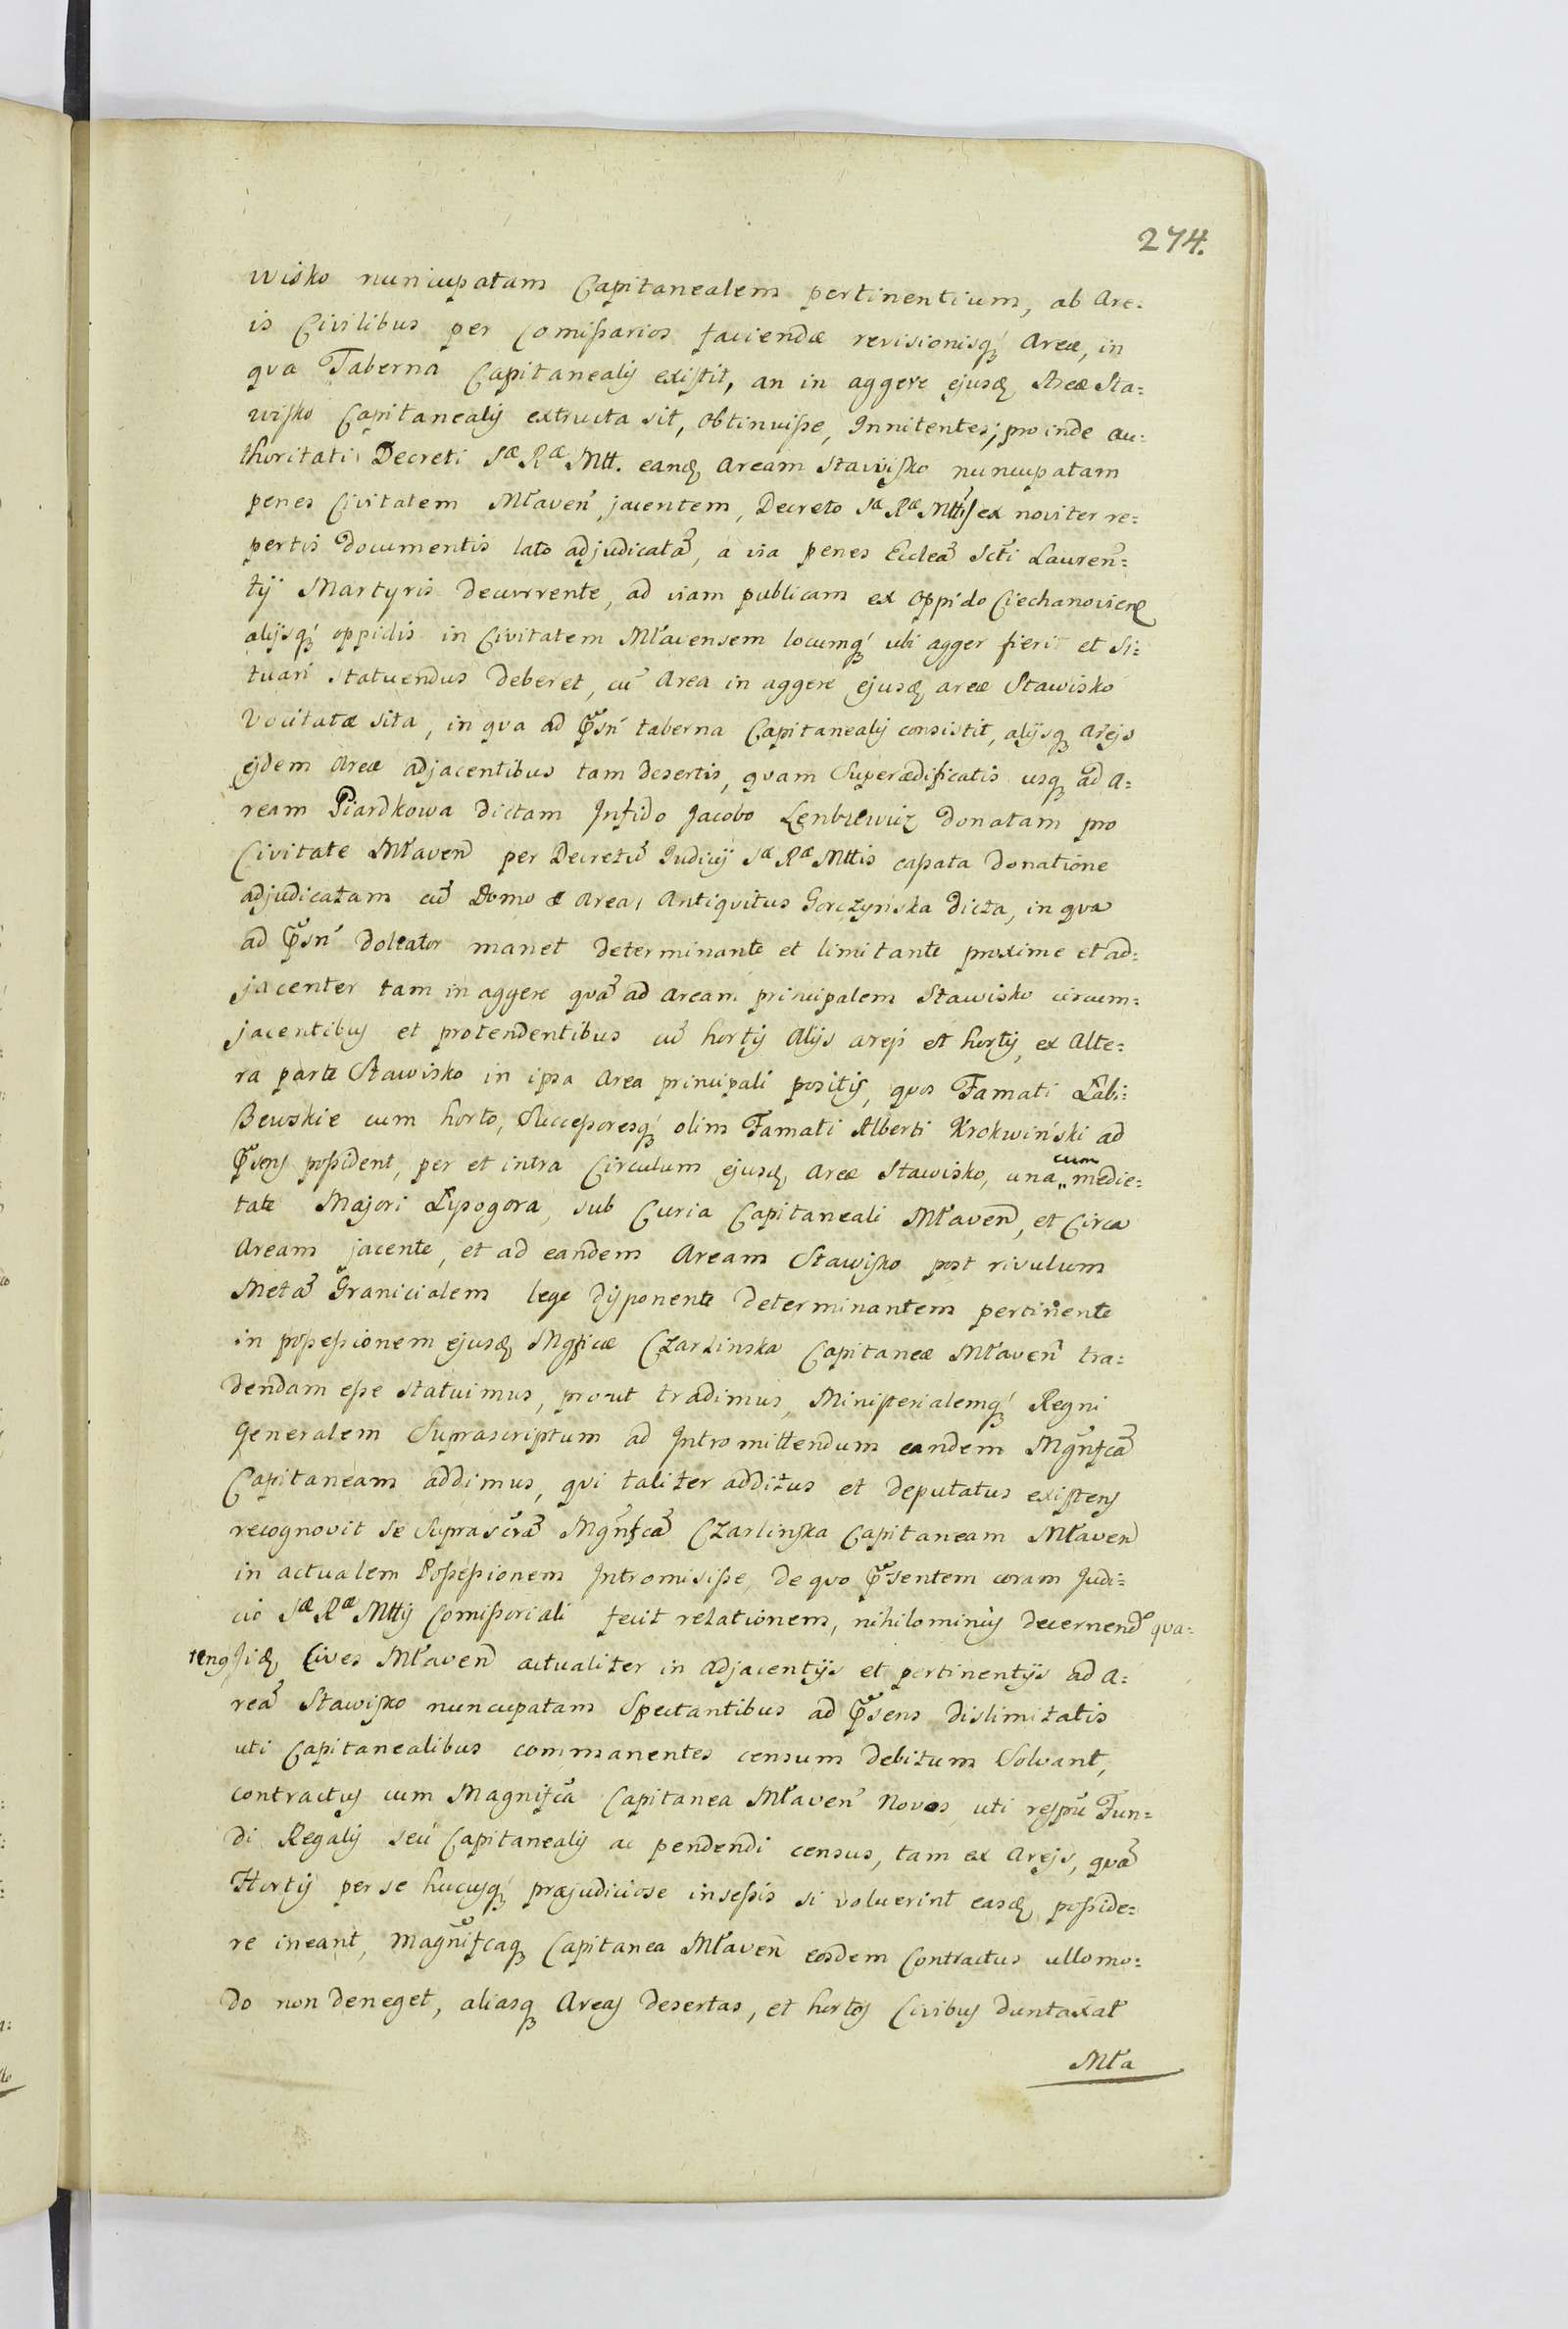 274.
wisko nuncupatam Capitanealem pertinentium, ab Are:
is Civilibus per Comißarios faciendæ revisionisq́ꝫ Areæ, in
qva Taberna Capitanealis existit, an in aggere ejusdꝫ Areæ Sta:
wisko Capitanealis extructa sit, obtinuiße, Innitentes; proinde au:
thoritati Decreti Sæ Ræ Mtt. eandꝫ Aream Stawisko nuncupatam
penes Civitatem Młaveñ jacentem, Decreto Sæ Ræ Mttis ex noviter re:
pertis documentis lato adjudicatã, a via penes Eccleã Scti Laureñ:
tij Martyris decurrente, ad viam publicam ex oppido Ciechanoviens
alijsq́ꝫ oppidis in Civitatem Mławensem locumq́ꝫ ubi agger fieri et si:
tuari statuendus deberet, cũ Area in aggere ejusdꝫ areæ Stawisko
vocitatæ sita, in qva ad p̃sñ taberna Capitanealis consistit, alijsqꝫ Arejs
ejdem Areæ adjacentibus tam desertis, qvam Superædificatis usqꝫ ad A:
ream Piardkowa dictam Infido Jacobo Lenbrewicz donatam pro
Civitate Młaveñ per Decretũ Judicij Sæ Ræ Mttis caßata donatione
adjudicatam cũ Domo & Area, Antiqvitus Gorczyńska dicta, in qva
ad p̃sñ doleator manet determinante et limitante proxime et ad:
jacenter tam in aggere qvã ad Aream principalem Stawisko circum:
jacentibus et protendentibus cũ hortis Alijs arejs et hortis, ex Alte:
ra parte Stawisko in ipsa Area principali positis, qvos Famati Łabi:
Bewskie cum horto, Succeßoresq́ꝫ olim Famati Alberti Krokwiński ad
p̃sens poßident, per et intra Circulum ejusdꝫ Areæ Stawisko, una cum medie:
tate Majori Łysogora, sub Curia Capitaneali Młaveñ, et Circa
Aream jacente, et ad eandem Aream Stawisko post rivulum
Metã Granicialem lege disponente determinantem pertinente
in poßeßionem ejusdꝫ Mgficæ Czarlinska Capitaneæ Młaveñ tra:
dendam eße statuimus, prout tradimus, Ministerialemq́ꝫ Regni
Generalem Suprascriptum ad Intromittendum eandem Mgnfcã
Capitaneam addimus, qvi taliter additus et deputatus existens
recognovit se Suprascrã Mgnfcã Czarlinska Capitaneam Młaveñ
in actualem Poßeßionem Intromisiße, de qvo p̃sentem coram Judi:
cio Sæ Ræ Mttis Comißoriali fecit relationem, nihilominus decernend qva:
tenꝰ Jidꝫ Cives Młaveñ actualiter in Adjacentijs et pertinentijs ad A:
reã Stawisko nuncupatam Spectantibus ad p̃sens dislimitatis
uti Capitanealibus commanentes censum debitum Solvant,
contractus cum Magnifcã Capitanea Młaveñ Novos, uti respũ Fun:
di Regalis seu Capitanealis ac pendendi census, tam ex Arejs, qvã
Hortis per se hucusq́ꝫ præjudiciose inseßis si voluerint easdꝫ poßide:
re ineant, Magnifcaqꝫ Capitanea Młaveñ eosdem Contractus ullomo:
do non deneget, aliasqꝫ Areas desertas, et hortos Civibus duntaxat
Mła